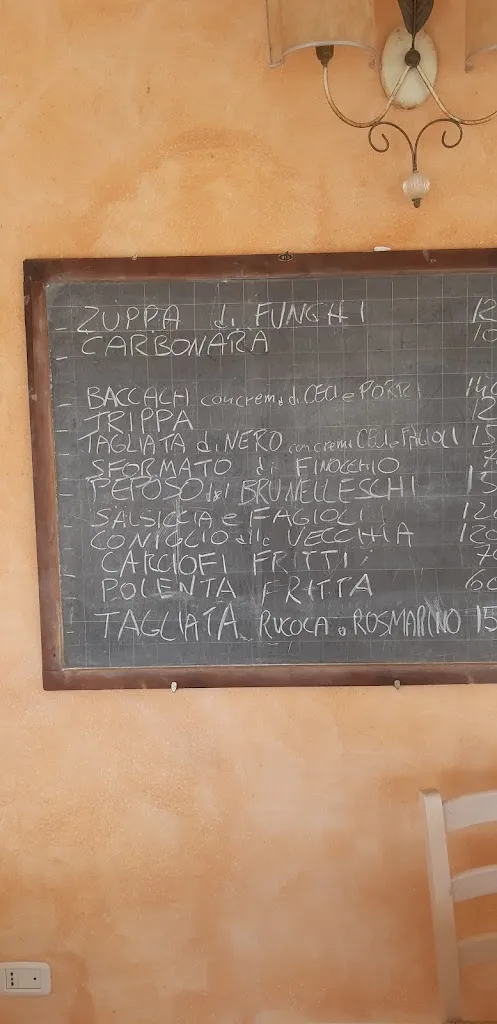 - ZUPPA di FUNGHI 12
- CARBONARA 10
- BACCALA con crema di CECI e PORRI 14
- TRIPPA 12
- TAGLIATA di NERO con crema CECI e FAGIOLI 15
- SFORMATO di FINOCCHIO
- PEPOSO del BRUNELLESCHI 15
- SALSICCIA e FAGIOLI 120
- CONIGLIO alla VECCHIA 120
- CARCIOFI FRITTI 70
- POLENTA FRITTA 60
- TAGLIATA RUCOLA o ROSMARINO 15